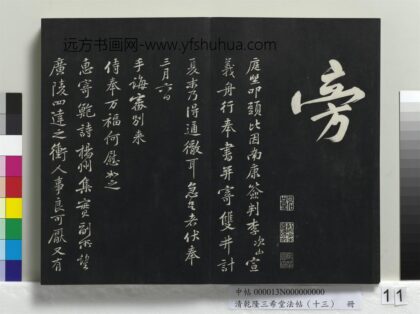 远方书画网-www.yfshuhua.com
旁
庭堅叩頭比因南康簽判李次山宣
義舟行奉書并寄雙井計
夏末乃得通徹耳急足者伏奉
三月六日
手誨審別來
侍奉万福何慰如之
惠寄鮑詩揚州集實副所望
廣陵四達之衝人事良可厭又有
中帖 000013N000000000
清乾隆三希堂法帖（十三） 冊
11